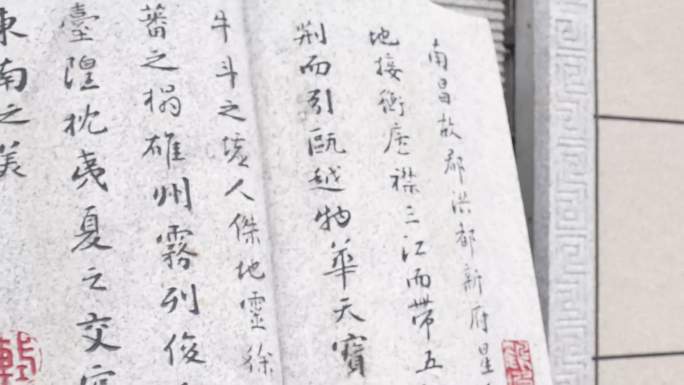 南昌故郡洪都新府星
地接衡廬襟三江而帶五
荊而引甌越物華天寶
牛斗之墟人傑地靈徐
蕃之榻雄州霧列俊
臺隍枕夷夏之交賓
東南之美